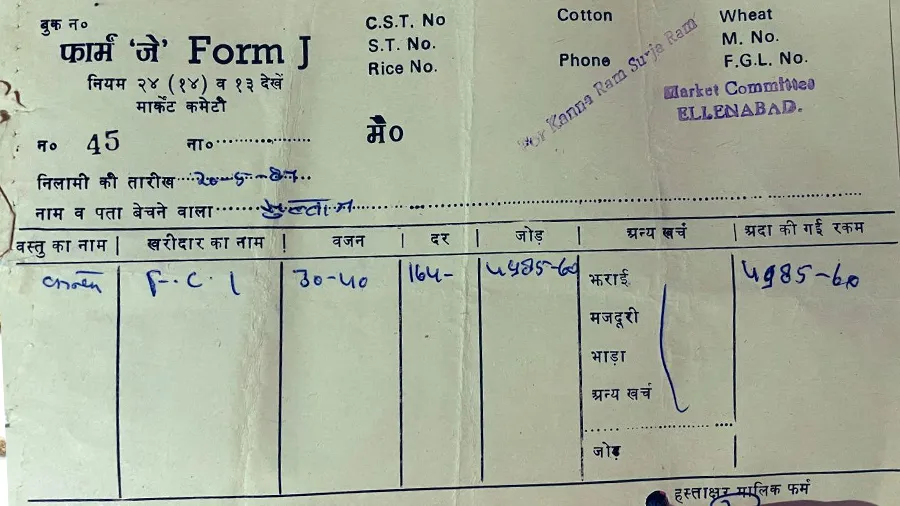 बुक न०
फार्म 'जे' Form J
नियम २४ (१४) व १३ देखें
मार्केट कमेटी
C.S.T. No
S.T. No.
Rice No.
Cotton
Phone
Wheat
M. No.
F.G.L. No.
For Kanna Ram Surja Ram
Market Committee
ELLENABAD.
न० 45 ना०
मै०
निलामी की तारीख 20-5-87
नाम व पता बेचने वाला
वस्तु का नाम खरीदार का नाम वजन दर जोड़ अन्य खर्च अदा की गई रकम
F.C.I 30-40 164- 4985-60 झराई 4985-60
मजदूरी
भाड़ा
अन्य खर्च
जोड़
हस्ताक्षर मालिक फर्म